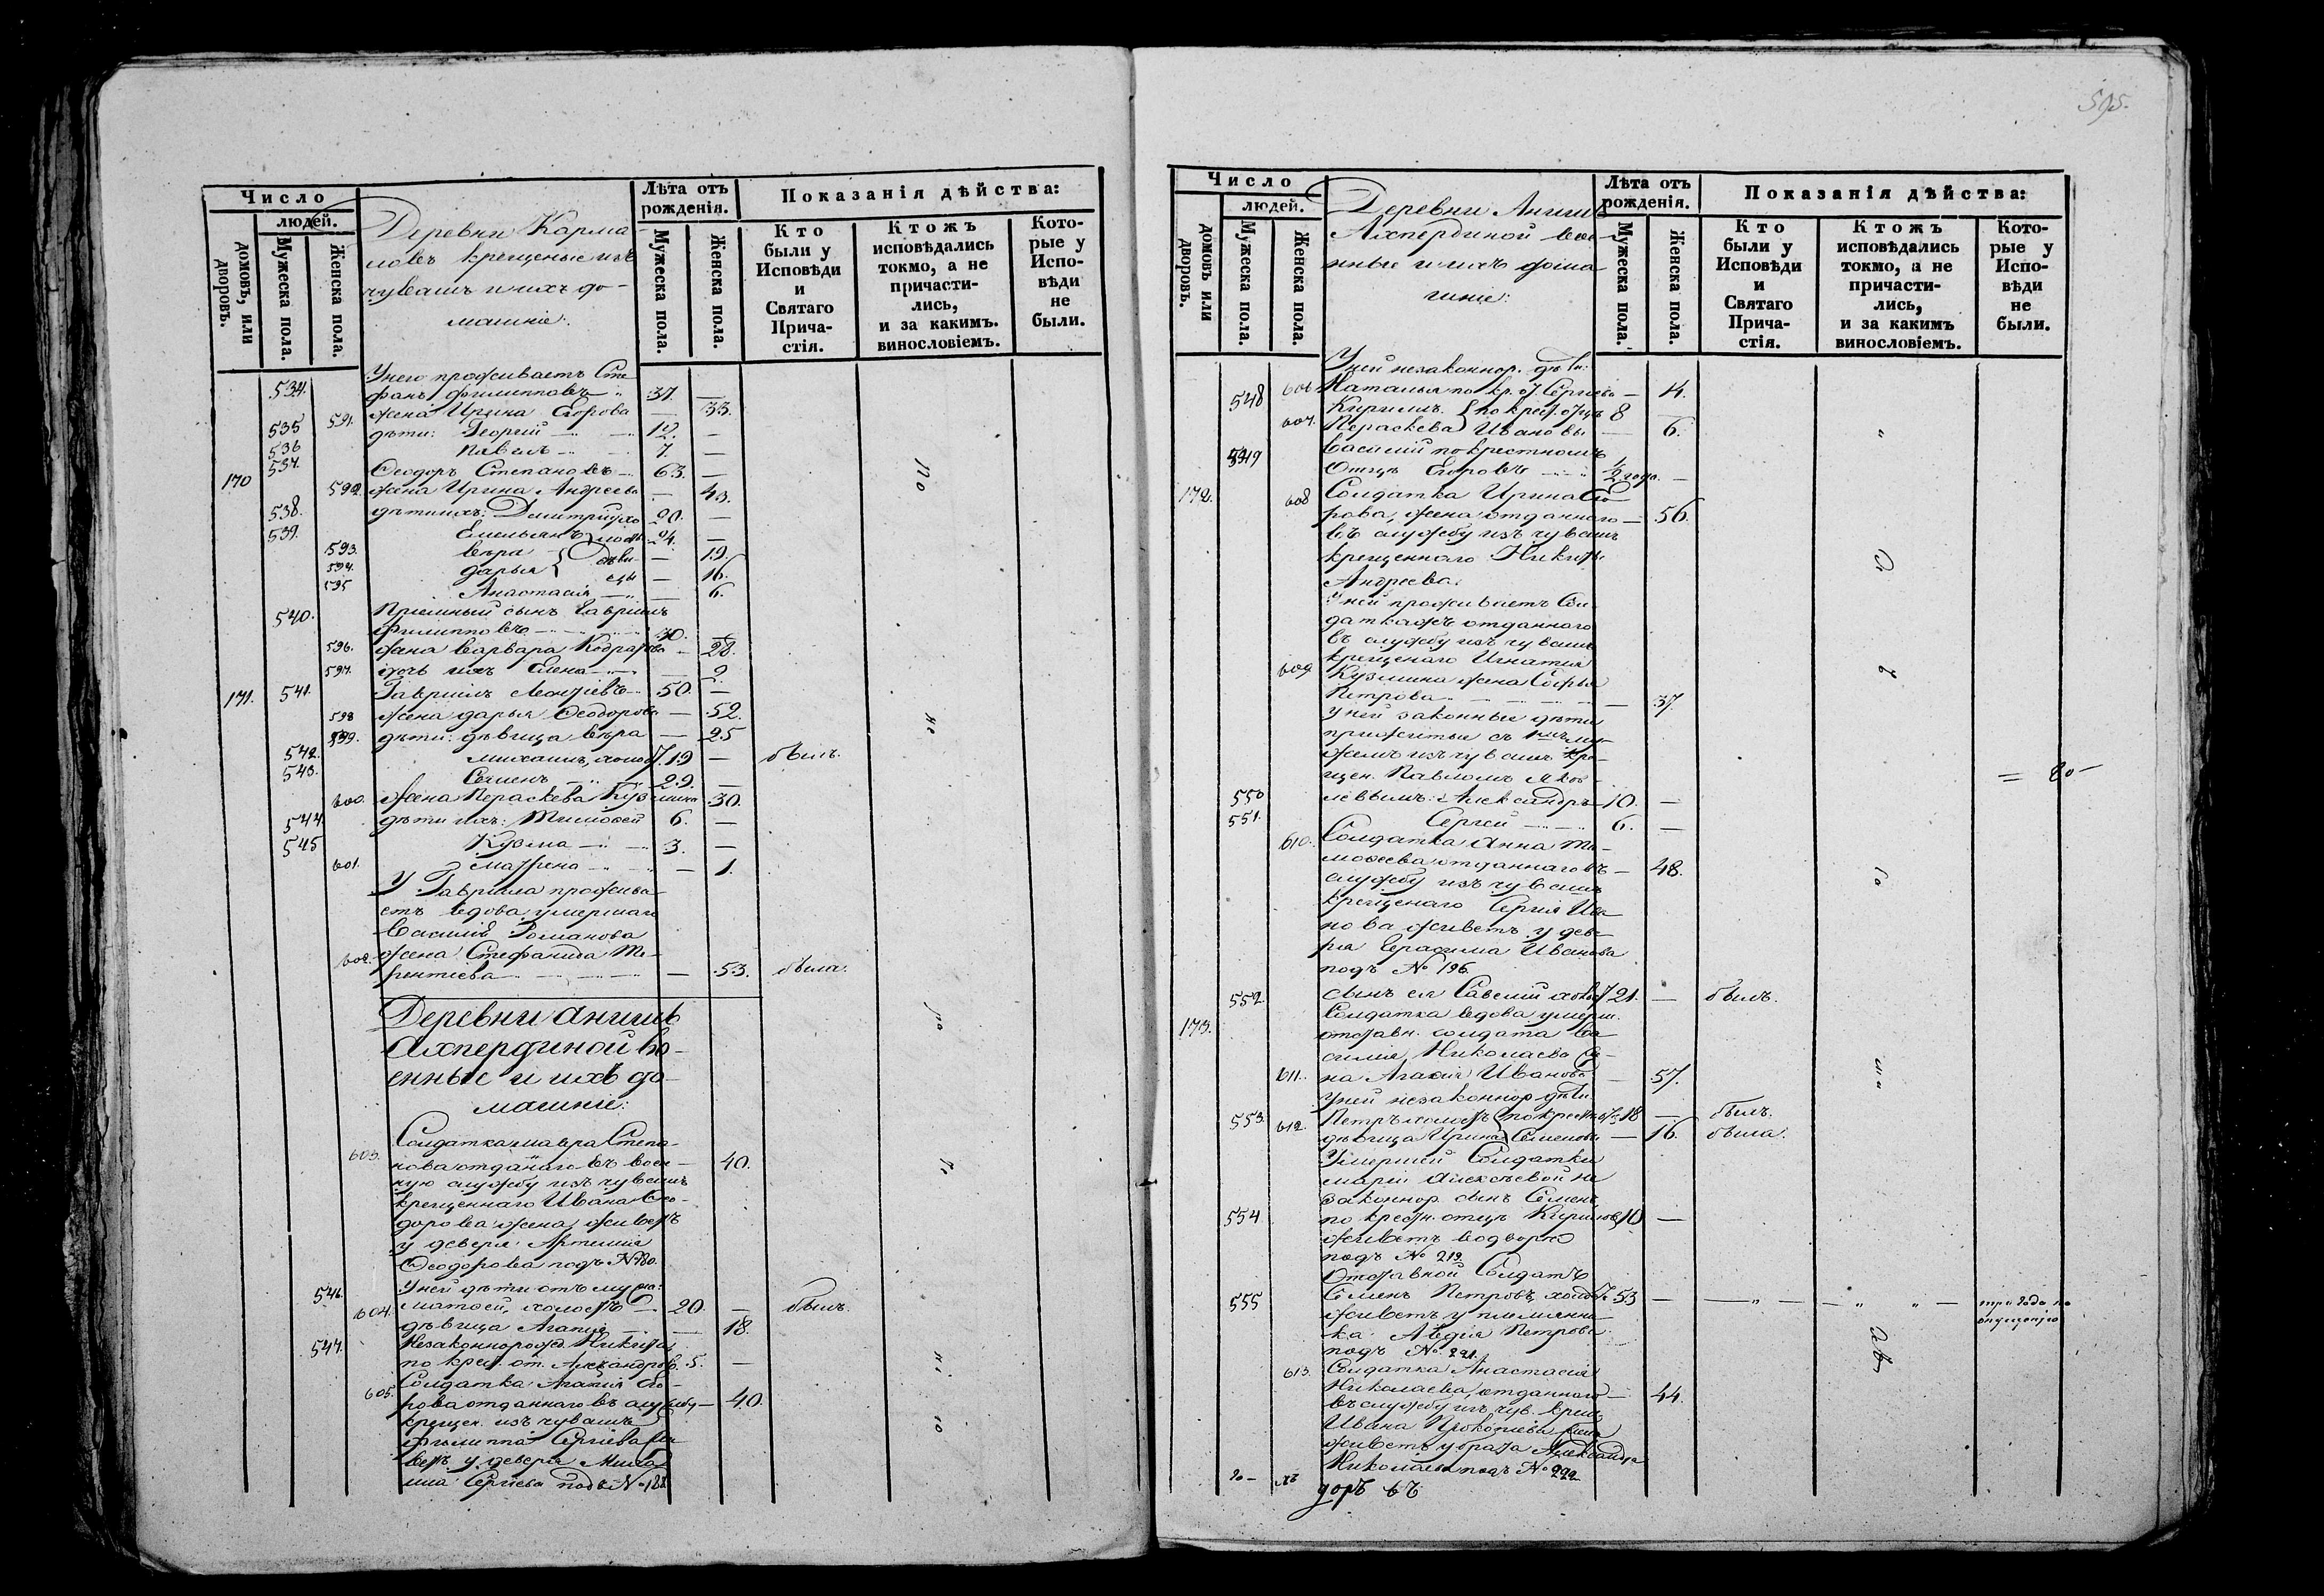 595.
Число
людей.
домовъ, или дворовъ.
Мужеска пола.
Женска пола.
Деревни Карма-
ловъ крещеные изъ
чувашъ и ихъ до-
машніе:
Лѣта отъ
рожденія.
Мужеска пола.
Женска пола.
Показанія дѣйства:
Кто
были у
Исповѣди
и
Святаго
Прича-
стія.
Ктожъ
исповѣдались
токмо, а не
причасти-
лись,
и за какимъ.
винословіемъ.
Кото-
рые у
Испо-
вѣди
не
были.
У него проживаетъ Сте
534. фанъ Филипповъ 37. —
591. жена Ирина Егорова — 33.
535 дѣти: Георгій 12. —
536 Павелъ 7. —
170 537. Ѳеодоръ Степановъ 63. —
592. жена Ирина Андреева — 43.
538. дѣти ихъ: Димитрій хо 20. —
539. Емельянъ лосты 24. —
593. Вѣра — 19.
594. Дарья дѣви-цы — 16.
595 Анастасія — 6.
Пріемный сынъ Гавріилъ
540. Филипповъ 30. —
596. жена Варвара — 28.
597. дочь ихъ Елена — 2.
171. 541. Гавріилъ Леонтьевъ 50. —
598 жена Дарья Ѳеодорова — 52.
599. дѣти: дѣвица Вѣра — 25
542. Михаилъ, холост. 19 — былъ.
543. Семенъ 29. —
600. жена Параскева Кузмина 30.
544. дѣти ихъ: Тимоѳей 6. —
545 Кузма 3. —
601. Матрена — 1.
У Гавріила прожива-
етъ вдова умершаго
Василія Романова
602. жена Стефанида Те-
рентьева — 53. была.
Деревни Анишъ
Ахпердиной во-
енные и ихъ до-
машніе:
Солдатка Мавра Степа-
603. нова отданнаго въ воен- 40.
ную службу изъ чувашъ
крещеннаго Ивана Ѳео-
дорова жена, живетъ
у деверя Артемія
Ѳеодорова подъ № 180.
546. У ней дѣти отъ мужа:
Матѳей, холостъ 20. — былъ.
604. дѣвица Агапія — 18.
547. Незаконнорожд. Никита,
по крест. от. Александровъ. 5. —
Солдатка Агаѳія Его-
605. рова отданнаго въ службу — 40.
крещен. изъ чувашъ
Филиппа Сергіева жи
ветъ у деверя Миха
ила Сергіева подъ № 188
Число
людей.
домовъ или дворовъ.
Мужеска пола.
Женска пола.
Деревни Анишъ
Ахпердиной вое-
нные и ихъ дома
шніе:
Лѣта отъ
рожденія.
Мужеска пола.
Женска пола.
Показанія дѣйства:
Кто
были у
Исповѣди
и
Святаго
Прича-
стія.
Ктожъ
исповѣдались
токмо, а не
причасти-
лись,
и за какимъ
винословіемъ.
Кото-
рые у
Испо-
вѣди
не
были.
У ней незаконнор. дѣти:
606 Наталья по кр. о. Сергіева — 14.
548 Кириллъ по крест. отцѣ 8
607. Параскева Ивановы — 6.
549 Василій по крестному
отцу Егоровъ 1/2 года. —
172. 608 Солдатка Ирина Его
рова, жена отданнаго — 56.
въ службу изъ чувашъ
крещеннаго Никиты
Андреева.
У ней проживаетъ Сол-
датка жъ отданнаго
въ службу изъ чувашъ
крещенаго Игнатія
609 Кузмина жена Софья
Петрова — 37.
У ней законные дѣти
прижитые съ 1мъ му-
жемъ изъ чувашъ кре-
щен. Павломъ Яков-
550 левымъ: Александръ 10. —
551. Сергѣй 6. —
610. Солдатка Анна Ти-
моѳеева отданнаго въ — 48.
службу изъ чувашъ
крещенаго Сергія Ива
нова живетъ у деве-
ря Герасима Иванова
подъ № 196.
552. Сынъ ея Савелій холост 21. — былъ.
173. Солдатка вдова умерш.
отставн. солдата Ва
силія Николаева же-
611. на Агаѳія Иванова — 57.
У ней незаконнор. дѣти
553. Петръ холостъ по крестн. от. 18 — былъ.
612. дѣвица Ирина Семеновы — 16. была.
Умершей Солдатки
Маріи Алексѣевой не
законнор. сынъ Семенъ
554 по крестн. отцу Кириловъ 10 —
живетъ во дворѣ
подъ № 219.
Отставной Солдатъ
555 Семенъ Петровъ, холост. 53 — три года по опущенію
живетъ у племянни-
ка Авдія Петрова
подъ № 221.
613. Солдатка Анастасія
Николаева, отданнаго — 44.
въ службу изъ чув. крещ.
Ивана Прокопіева жена
живетъ у брата Александра
Николаева подъ № 222